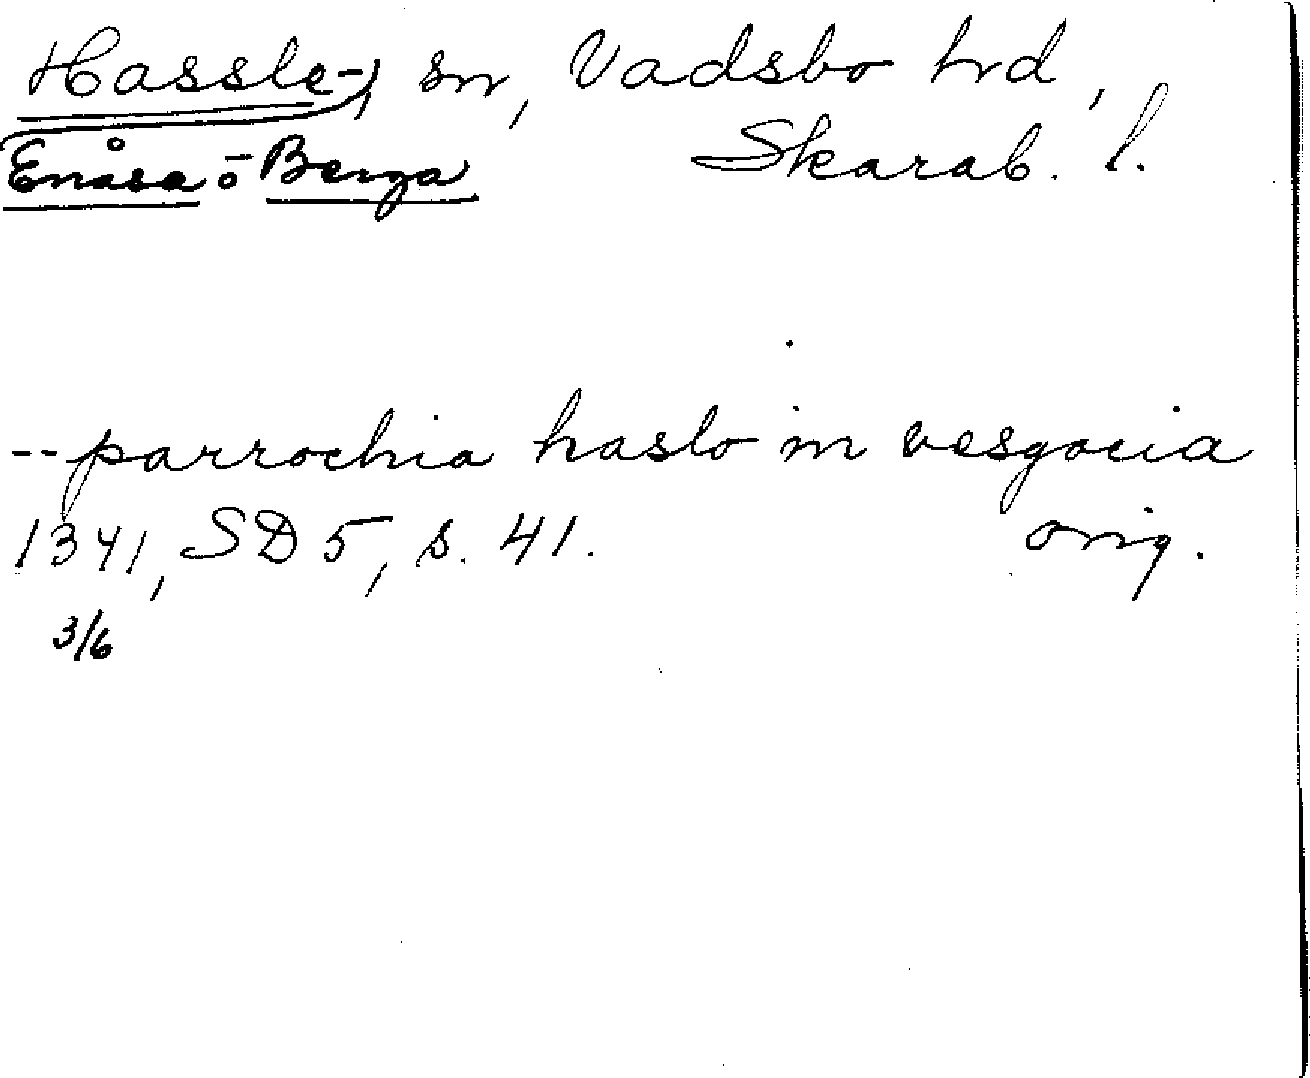 Hassle-, sn, Vadsbo hd,
Enåsa- o Berga Skarab. l.
--parrochia haslo in vesgocia
1341, SD 5, s. 41. orig.
3/6